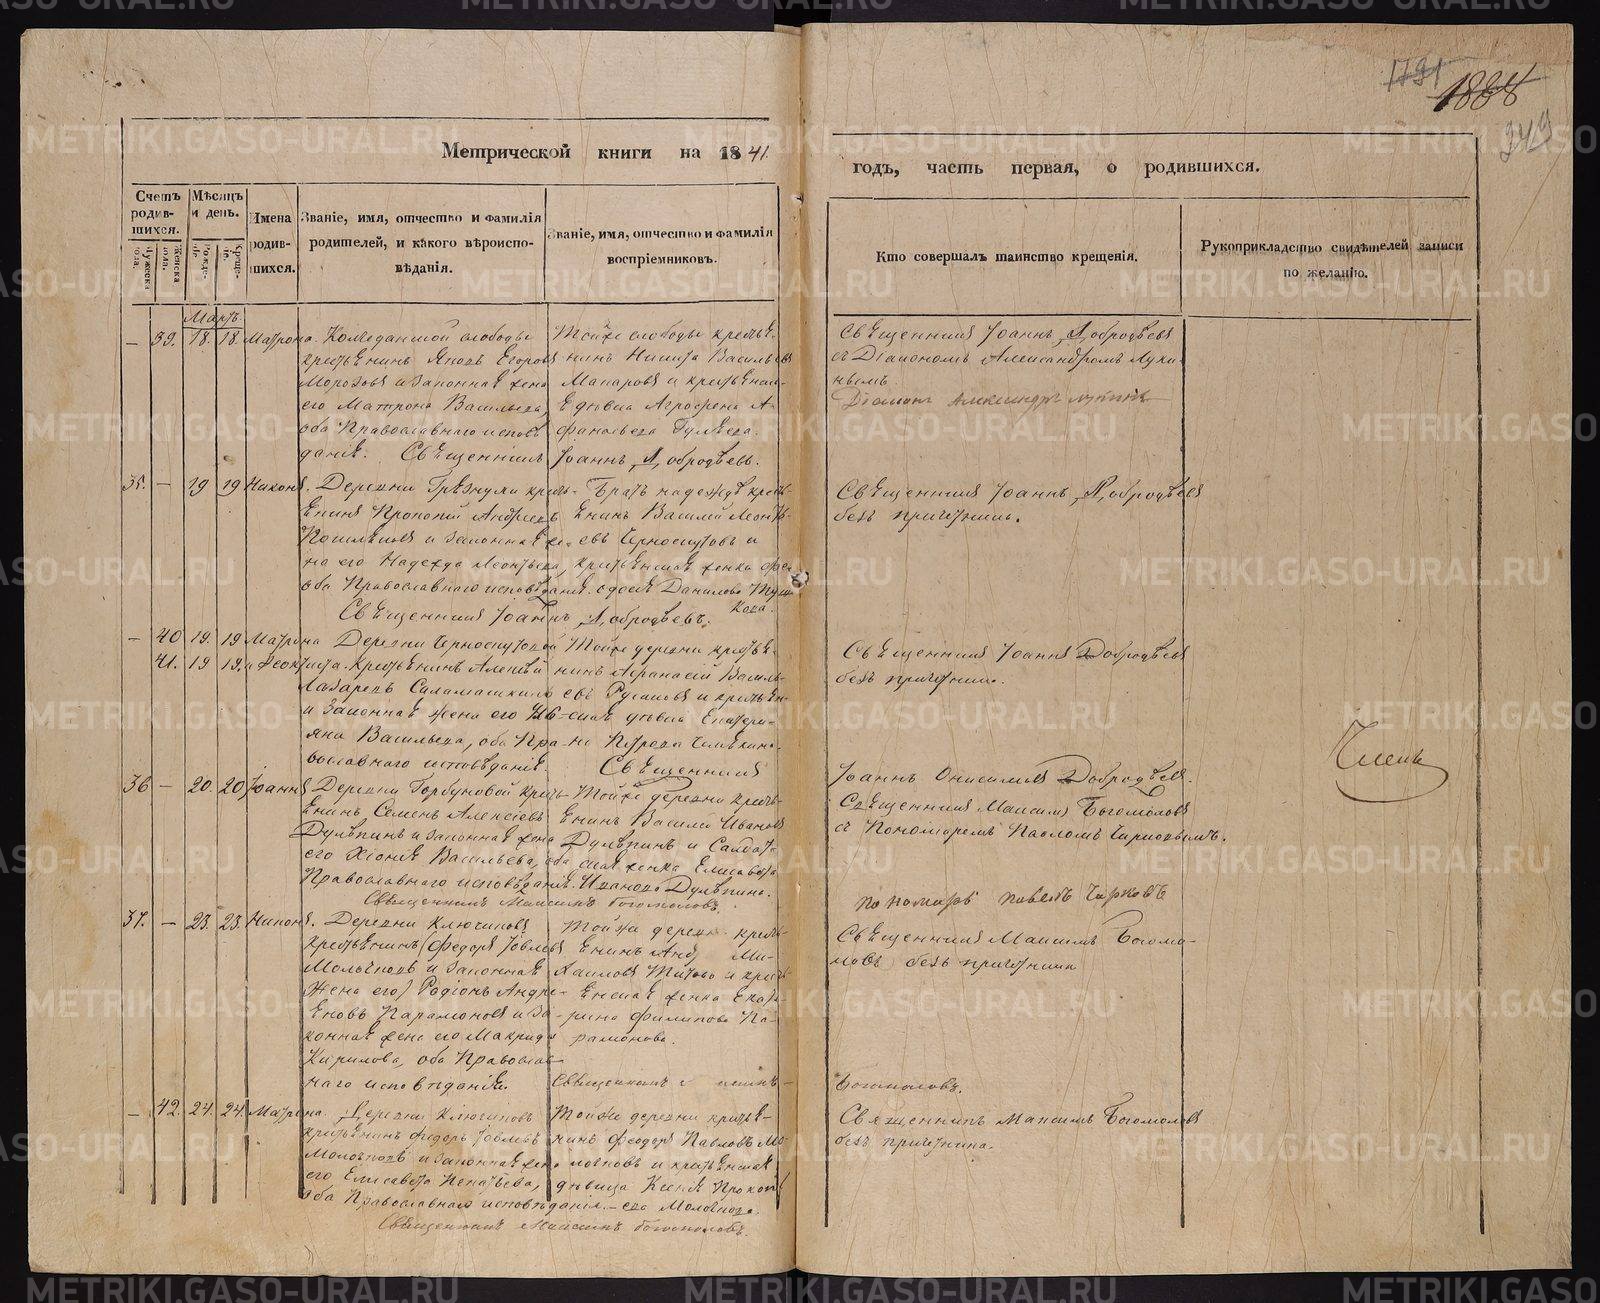 1791
1888
349
Метрической книги на 1841.
годъ, часть первая, о родившихся.
Счетъ родив-шихся.
Мужеска пола.
Женска пола.
Мѣсяцъ и день.
Рожде-нія.
Креще-нія.
Имена родив-шихся.
Званіе, имя, отчество и фамилія
родителей, и какого вѣроиспо-
вѣданія.
Званіе, имя, отчество и фамилія
воспріемниковъ.
Кто совершалъ таинство крещенія.
Рукоприкладство свидѣтелей записи
по желанію.
Мартъ.
— 39. 18. 18. Матрона
слободы
крестьянинъ Яковъ Егоровъ
Морозовъ и законная жена
его Матрона Васильева,
оба Православнаго исповѣ
данія. Священникъ Іоаннъ Добродѣевъ.
Тойже слободы крестья-
нинъ Никита Васильевъ
Макаровъ и крестьянская
дѣвка Агрофена А-
Священникъ Іоаннъ Добродѣевъ
съ Діакономъ Александромъ Луки-
нымъ.
Діаконъ Александръ Лукинъ
35. — 19 19 Никонъ.
Деревни Грязнухи кресть-
янинъ Прокопій Андреевъ
и законная же-
на его Надежда Леонтьева,
оба Православнаго исповѣданія.
Священникъ Іоаннъ Добродѣевъ.
Братъ Надежды кресть-
янинъ Василій Леонть-
евъ Черноскутовъ и
крестьянская женка Фе-
одосія Данилова
Священникъ Іоаннъ Добродѣевъ
безъ причетника.
— 40 19. 19 Матрона
41. 19 19. и Феоктиста.
Деревни Черноскутовой
крестьянинъ Алексѣй
Лазаревъ
и законная жена его Уль-
яна Васильева, оба Пра-
вославнаго исповѣданія.
Священникъ
Тойже деревни крестья-
нинъ Афанасій Василь-
евъ Русаковъ и крестьян-
ская дѣвка Екатери-
на Петрова
Священникъ Іоаннъ Добродѣевъ
безъ причетника.
Іоаннъ Онисимовъ Добродѣевъ.
Членъ
36 — 20. 20 Іоаннъ
Деревни Горбуновой кресть-
янинъ Семенъ Алексѣевъ
Дулѣпинъ и законная жена
его Хіонія Васильева, оба
Православнаго исповѣданія.
Священникъ Максимъ Богомоловъ.
Тойже деревни кресть-
янинъ Василій Ивановъ
Дулѣпинъ и Салдат-
ская женка Елисавета
Иванова Дулѣпина.
Священникъ Максимъ Богомоловъ
съ Пономаремъ Павломъ Чирковымъ.
Пономарь Павелъ Чирковъ
37. — 23. 23. Никонъ.
Деревни Ключиковъ
крестьянинъ (Федоръ Іовлевъ
Молочковъ и законная
жена его) Радіонъ Андре-
евъ Парамоновъ и за-
конная жена его Макрида
Кирилова, оба Православ-
наго исповѣданія.
Тойже деревни кресть-
янинъ Анд Ми-
хаиловъ Титовъ и кресть-
янская женка Екате-
рина Филипова Па-
рамонова.
Священникъ Максимъ
Богомоловъ.
Священникъ Максимъ Богомо-
ловъ безъ причетника
— 42. 24. 24. Матрона.
Деревни Ключиковъ
крестьянинъ Федоръ Іовлевъ
Молочковъ и законная жена
его Елисавета Игнатьева,
оба Православнаго исповѣданія.
Священникъ Максимъ Богомоловъ.
Тойже деревни крестья-
нинъ Феодоръ Павловъ Мо-
лочковъ и крестьянская
дѣвица Ксенія Прокопь-
ева Молочкова.
Священникъ Максимъ Богомоловъ
безъ причетника.
METRIKI.GASO-URAL.RU